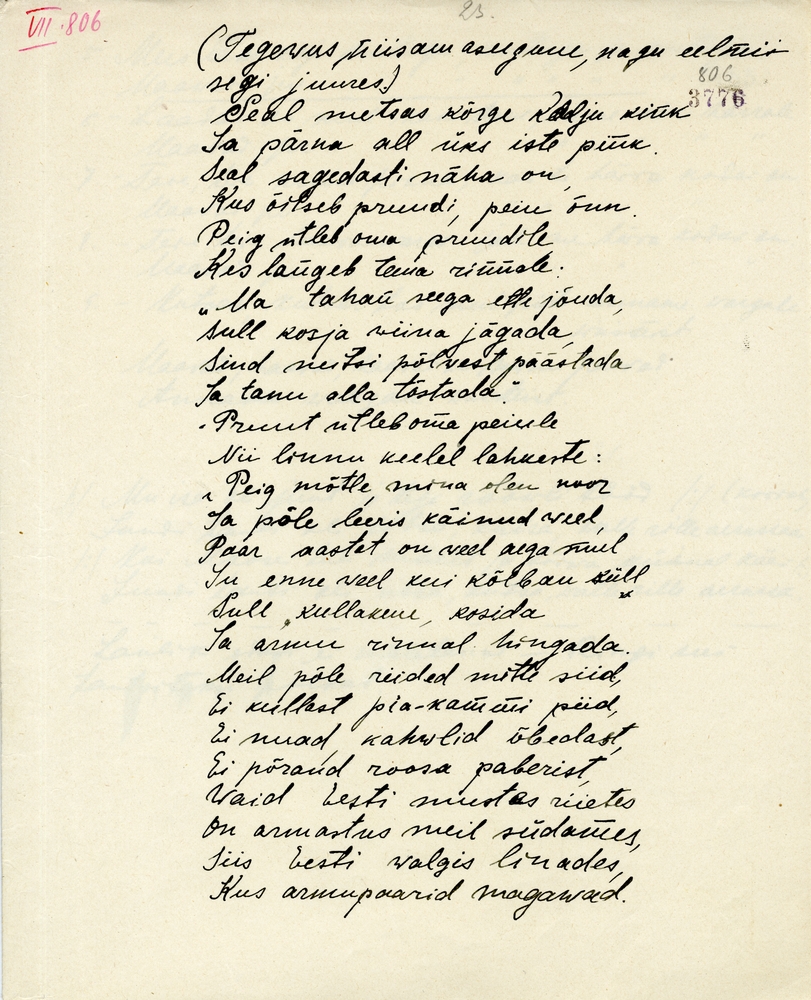 VII.806
23.
(Tegewus niisamasugune, nagu eelmii
segi juures.)
806
3776
Seal metsas kõrge kalju kink
Ja pärna all üks iste pink.
Seal sagedasti näha on,
Kus õitseb pruudi, peiu õnn.
Peig ütleb oma pruudile
Kes langeb tema rinnale:
„Ma tahan seega ette jõuda,
Sull kosja wiina jägada,
Sind neitsi põlvest päästada
Ja tanu alla tõstada."
Pruut ütleb oma peiule
Nii linnu keelel lahkeste:
„Peig mõtle, mina olen noor
Ja põle leeris käinud weel,
Paar aastat on veel aega mul
Ju enne veel kui kõlban küll
Sull, kullakene, kosida
Ja armu rinnal hingada.
Meil põle riided mitte siid,
Ei kullast pia-kammi piid,
Ei nuad, kahwlid õbedast,
Ei põrand roosa paberist,
Waid Eesti mustas riietes
On armastus meil südames,
Siis Eesti walgis linades,
Kus armupaarid magawad.